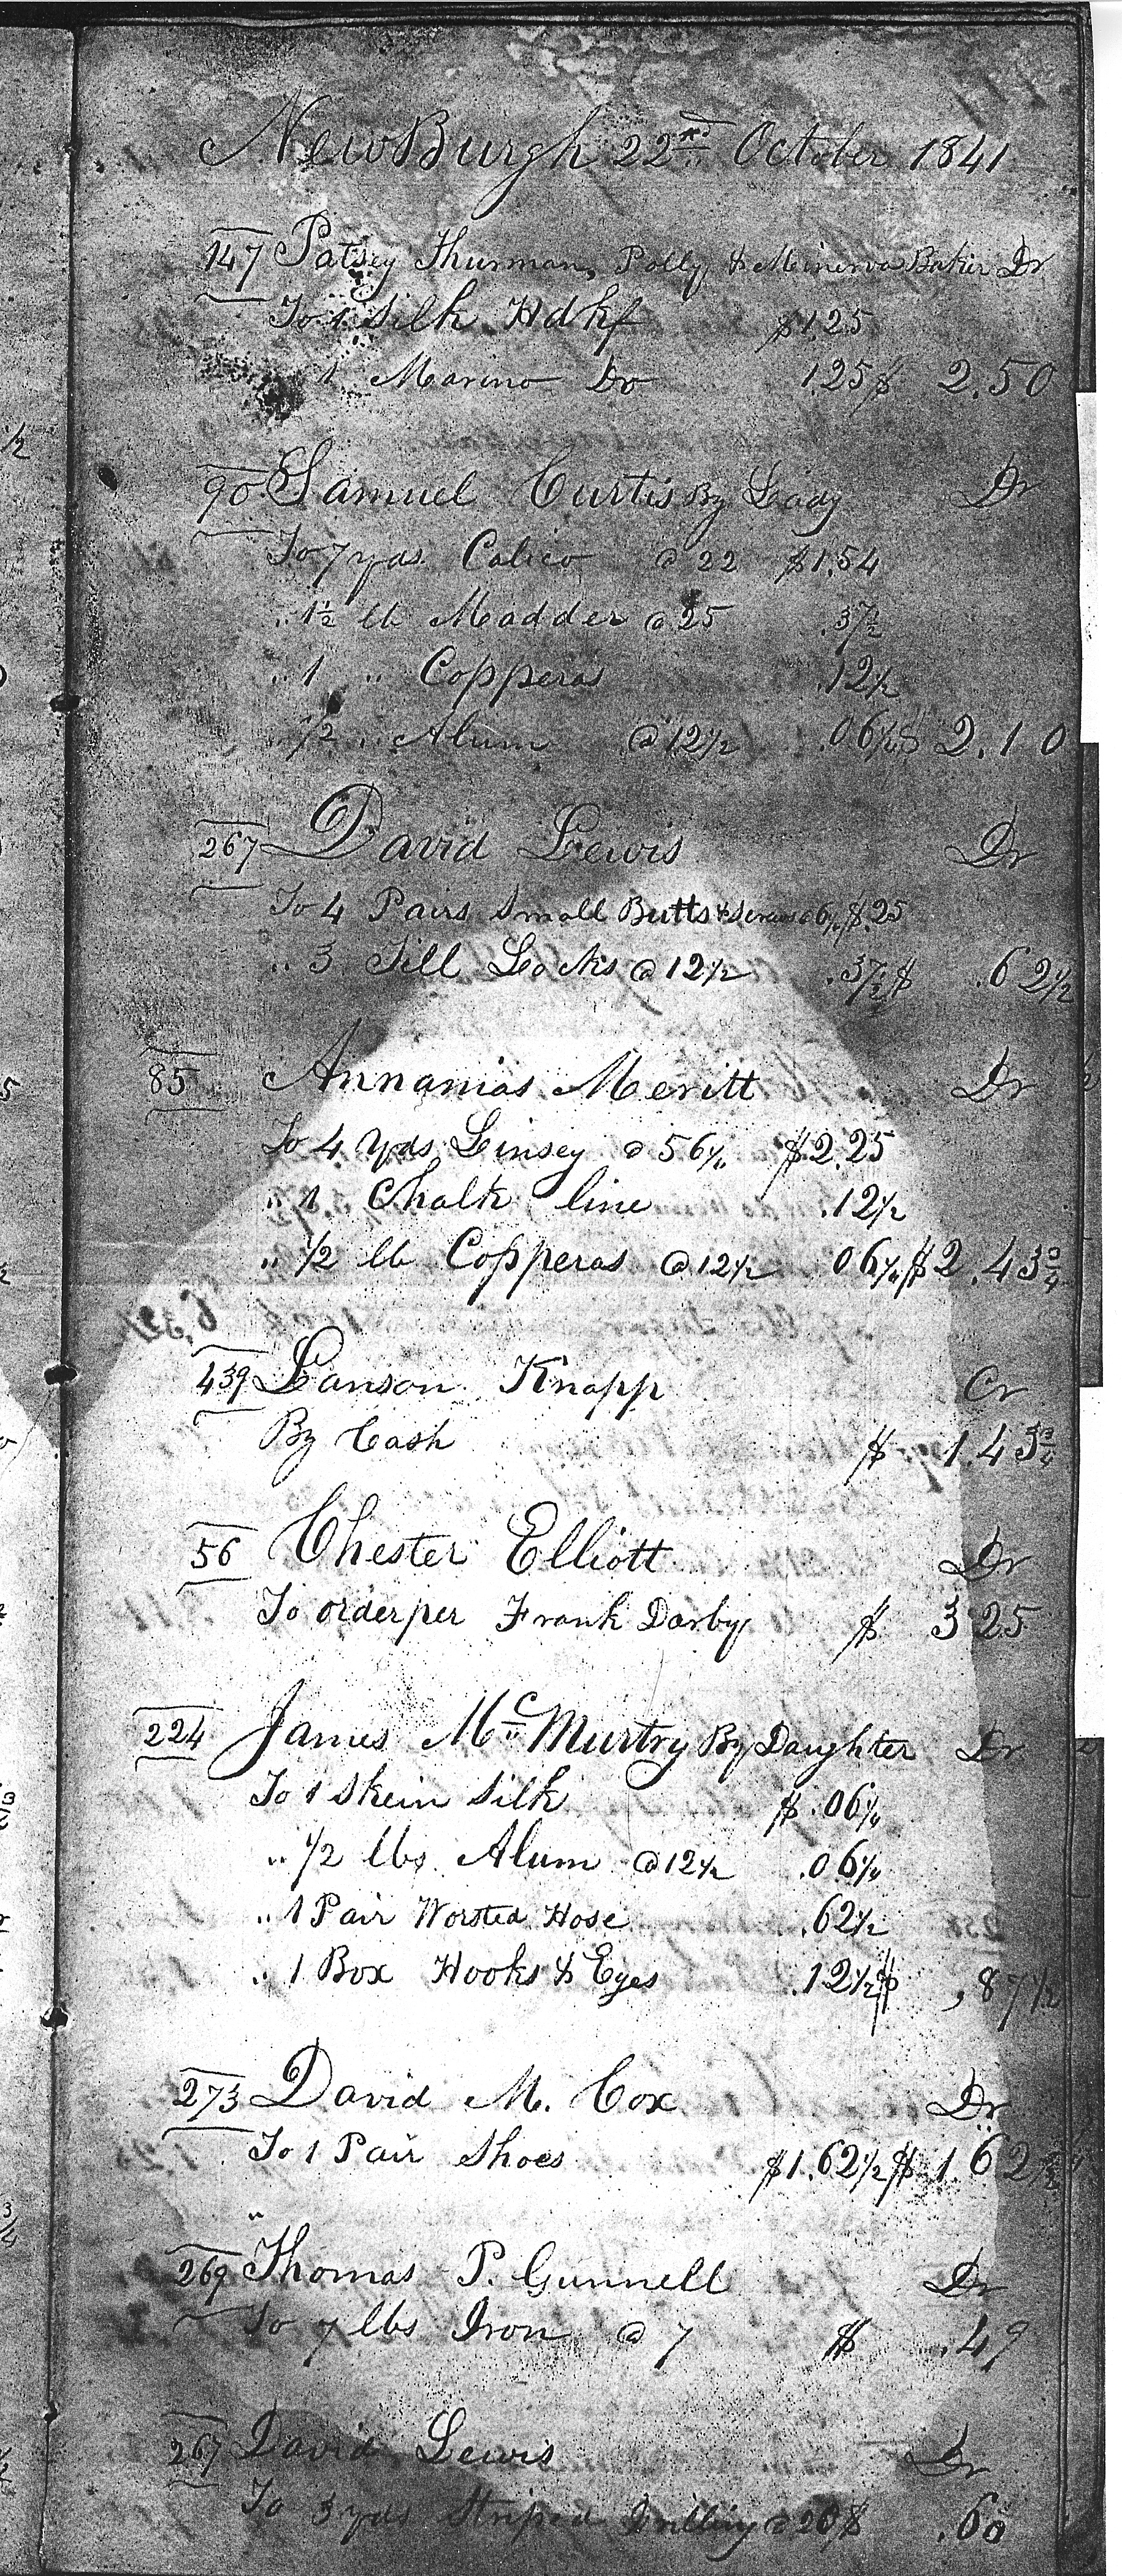 NewBurgh 22nd October 1841
147 Patsey Thurman, Polly & Minerva Baker Dr
To 1 Silk Hdkf $1.25
1 Marino Do 1.25 $ 2.50
90 Samuel Curtis By Lady Dr
To 7 yds Calico @ 22 $1.54
" 1½ lb Madder @ 25 .37½
" 1 " Copperas .12½
" ½ " Alum @ 12½ .06¼ $ 2.10
267 David Lewis Dr
To 4 Pairs Small Butts & Screws @ 6¼ $.25
" 3 Till Locks @ 12½ .37½ $ .62½
85 Annanias Meritt Dr
To 4 Yds Linsey @ 56¼ $2.25
" 1 Chalk line .12½
" ½ lb Copperas @ 12½ 06¼ $2.43¾
439 Lanson Knapp Cr
By Cash $ 1.43¾
56 Chester Elliott Dr
To order per Frank Darby $ 3 25
224 James McMurtry By Daughter Dr
To 1 Skein Silk $.06¼
" ½ lbs Alum @ 12½ .06¼
" 1 Pair Worsted Hose .62½
" 1 Box Hooks & Eyes .12½ $ ,87½
273 David M. Cox Dr
To 1 Pair Shoes $1.62½ $ 1 62½
269 Thomas P. Gunnell Dr
To 7 lbs Iron @ 7 $ .49
267 David Lewis Dr
To 3 yds Striped Drilling @ 20 $ .60